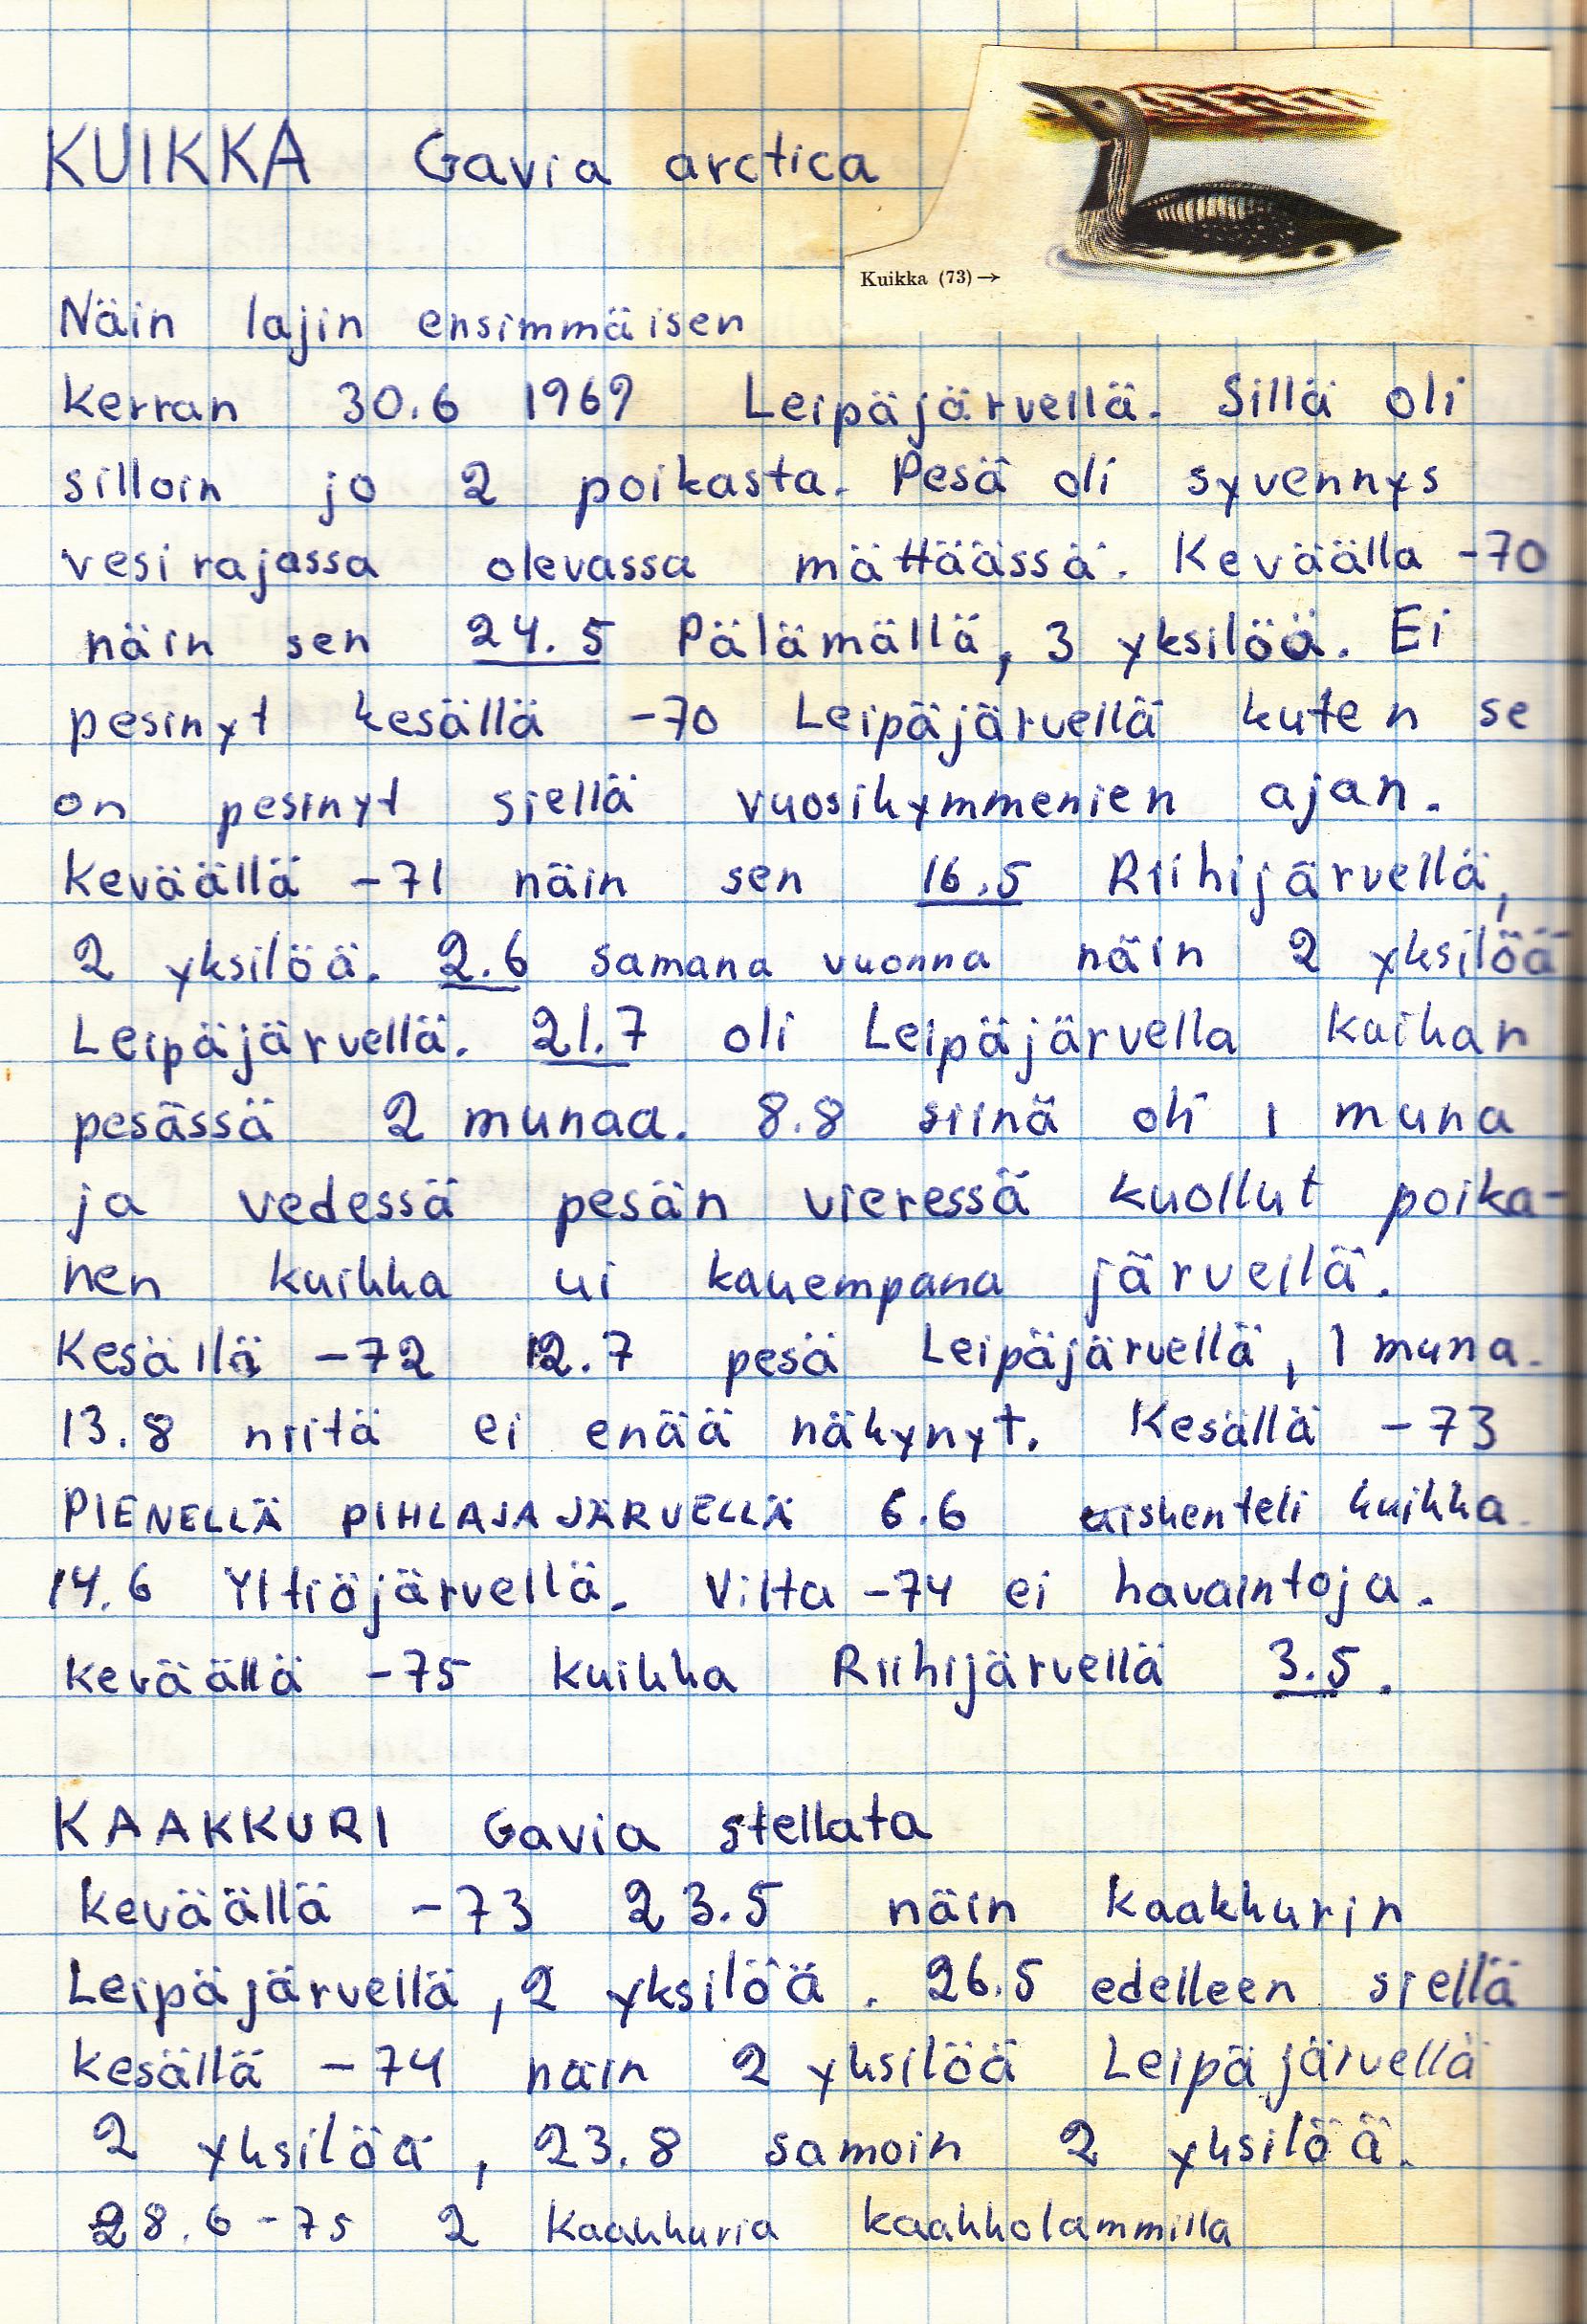 KUIKKA Gavia arctica
Kuikka (73)→
Näin lajin ensimmäisen
kerran 30.6 1969 Leipäjärvellä. Sillä oli
silloin jo 2 poikasta. Pesä oli syvennys
vesirajassa olevassa mättäässä. Keväällä -70
näin sen 24.5 Pälämällä, 3 yksilöä. Ei
pesinyt kesällä -70 Leipäjärvellä kuten se
on pesinyt siellä vuosikymmenien ajan.
Keväällä -71 näin sen 16.5 Riihijärvellä,
2 yksilöä. 2.6 samana vuonna näin 2 yksilöä
Leipäjärvellä. 21.7 oli Leipäjärvella kuikan
pesässä 2 munaa. 8.8 siinä oli 1 muna
ja vedessä pesän vieressä kuollut poika-
nen kuikka ui kauempana järvellä.
Kesällä -72 12.7 pesä Leipäjärvellä, 1 muna.
13.8 niitä ei enää näkynyt. Kesällä -73
PIENELLÄ PIHLAJAJÄRVELLÄ 6.6 uiskenteli kuikka.
14.6 Yltiöjärvellä. Vilta -74 ei havaintoja.
keväällä -75 kuikka Riihijärvellä 3.5.
KAAKKURI Gavia stellata
keväällä -73 23.5 näin kaakkurin
Leipäjärvellä, 2 yksilöä. 26.5 edelleen siellä
kesällä -74 näin 2 yksilöä Leipäjärvellä
2 yksilöä, 23.8 samoin 2 yksilöä.
28.6 -75 2 kaakkuria kaakkolammilla